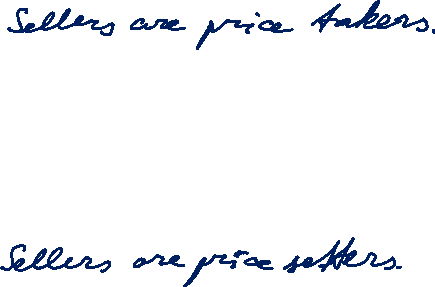 Sellers are price takers.
Sellers are price setters.